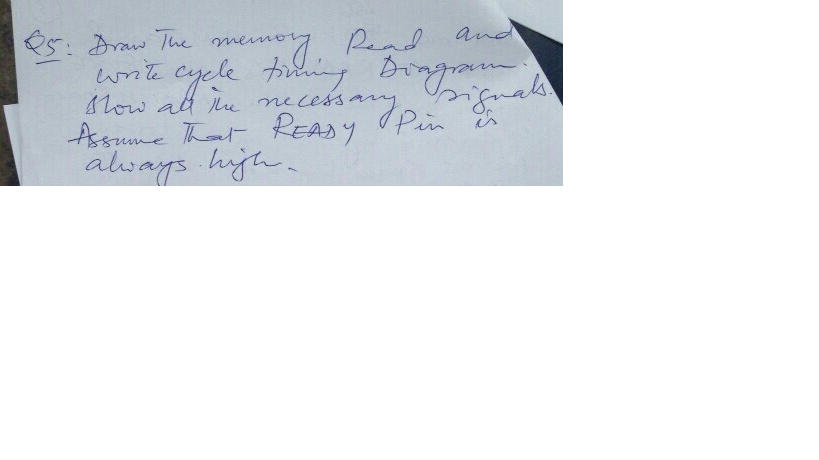 Q5: Draw The memory Read and
write cycle timing Diagram.
Show all the necessary signals.
Assume That READY Pin is
always high.